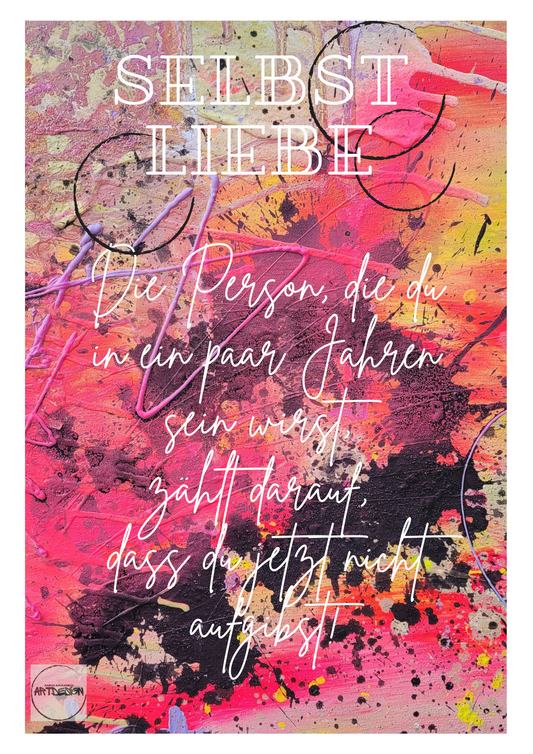 SELBST
LIEBE
Die Person, die du
in ein paar Jahren
sein wirst,
zählt darauf,
dass du jetzt nicht
aufgibst!
ARTDESIGN